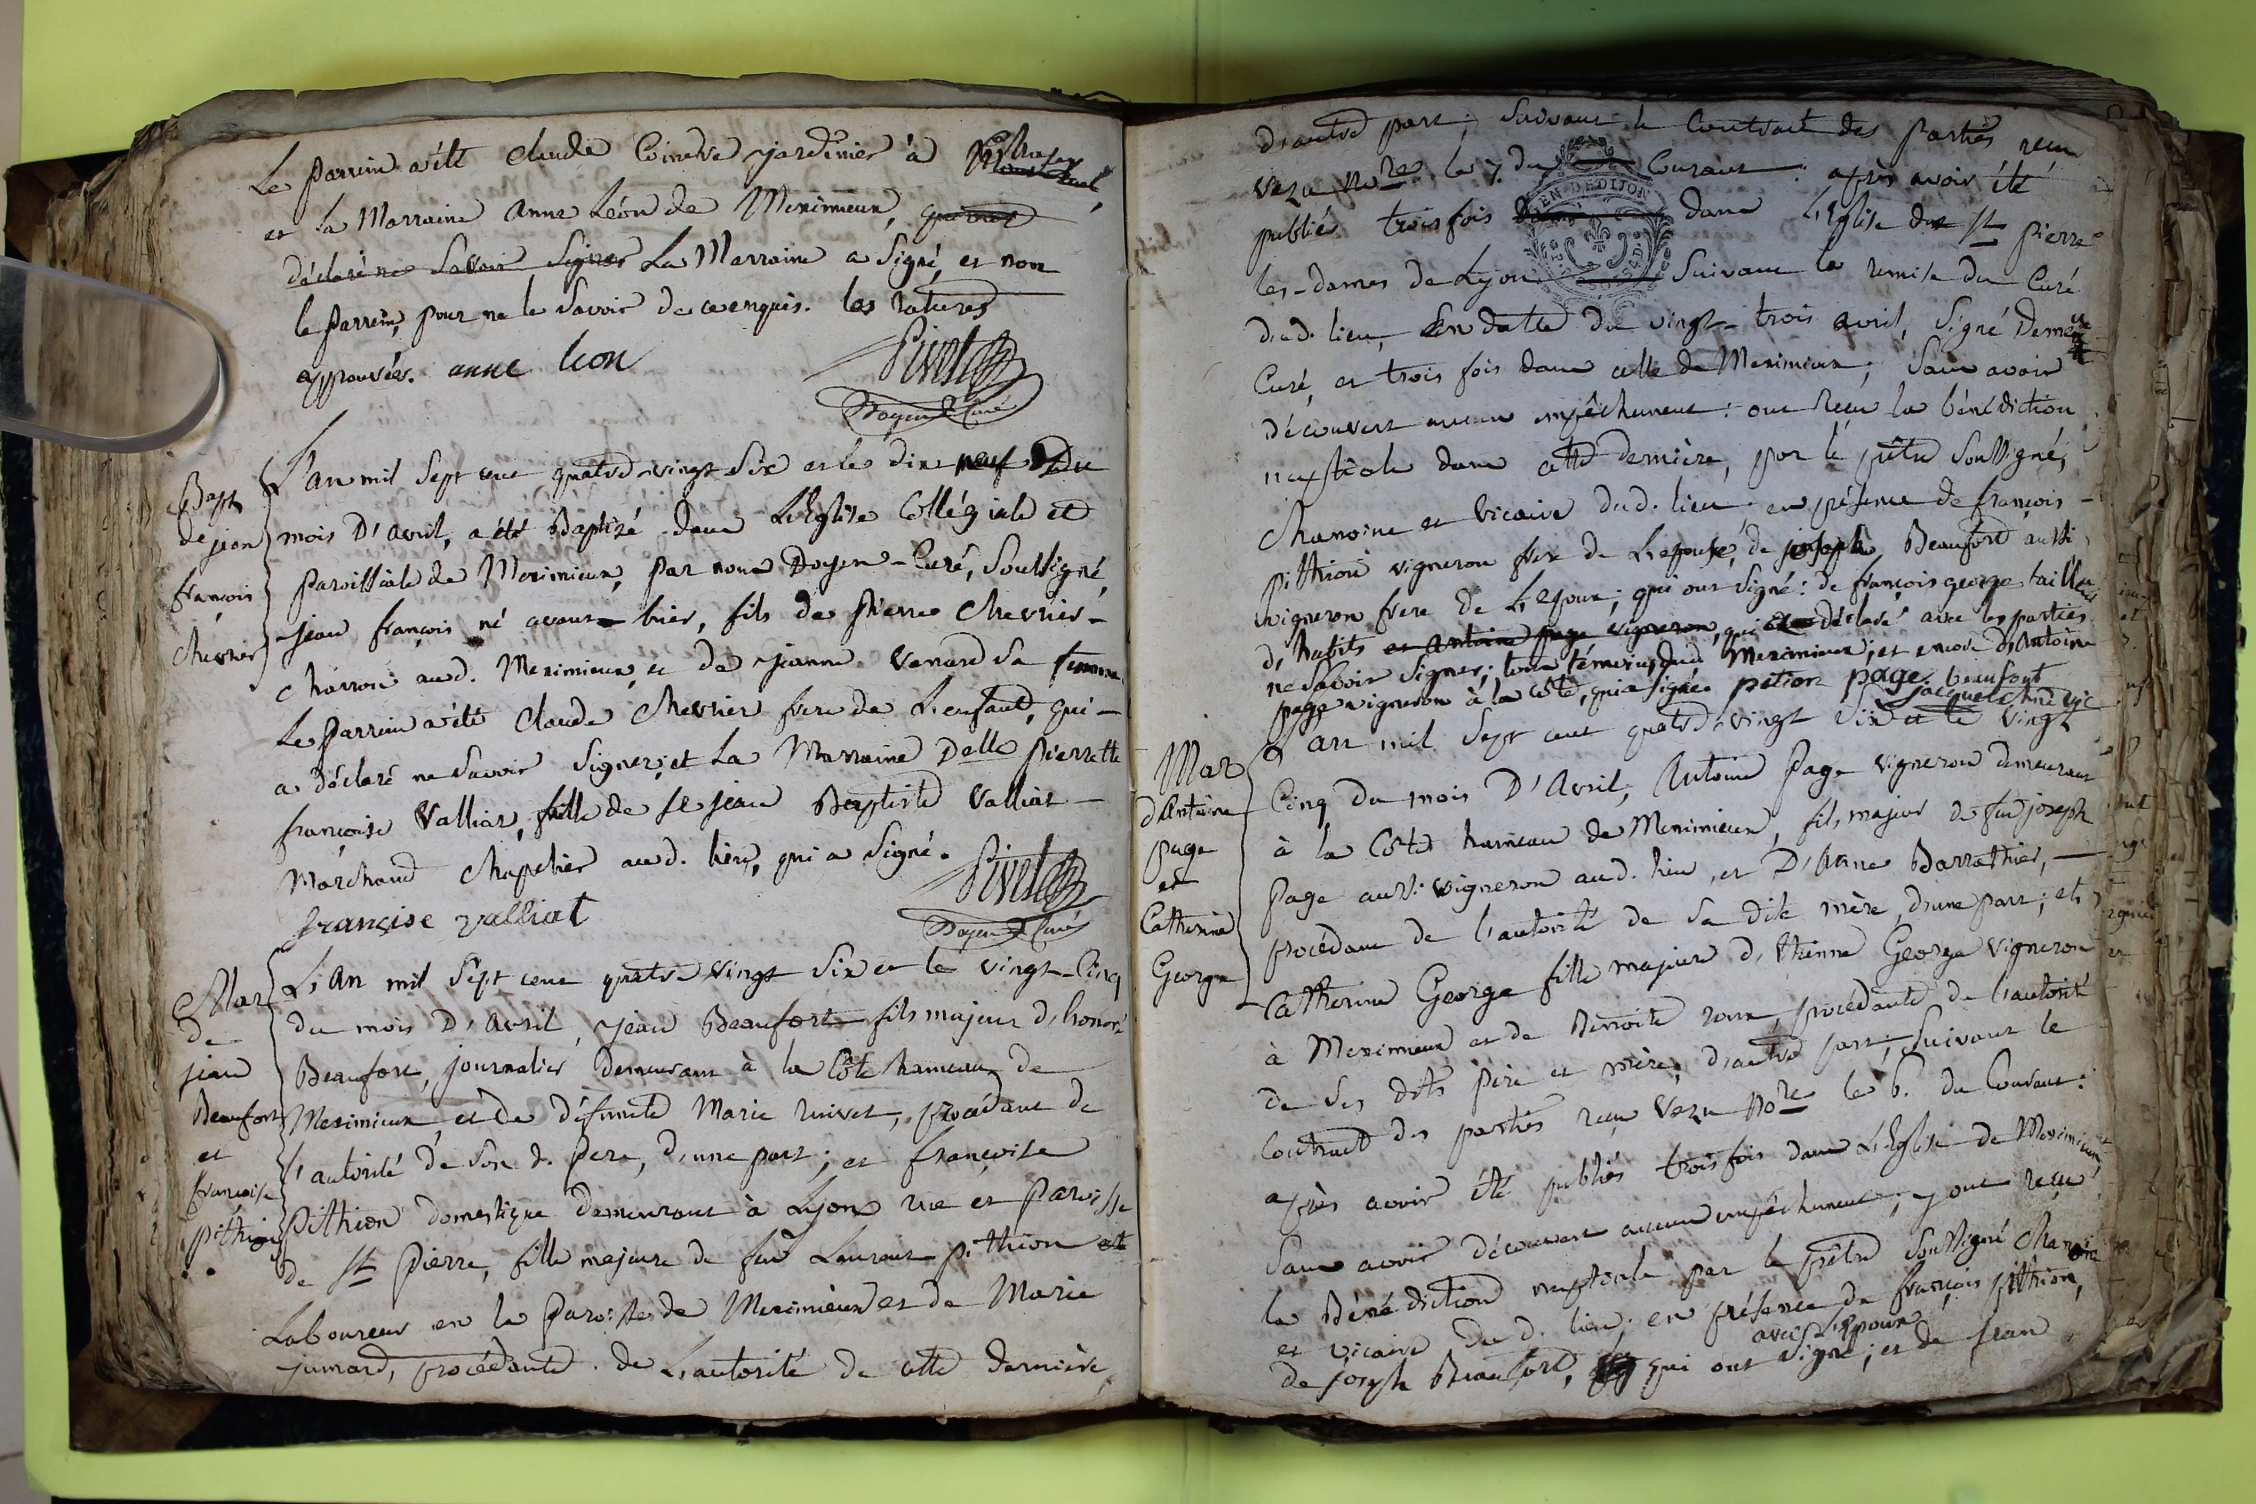 Le Parrein a été Claude Coindre jardinier à
et la Marraine Anne Léon de Meximieux, qui ont
déclaré ne Savoir Signer La Marraine a Signé, et non
le Parrein, pour ne le Savoir de ce enquis. les ratures
approuvées. anne leon
Pivet
Doyen & Curé
Bapt
de jean
françois
Chevrier
L'an mil Sept cent quatre-vingt Six et le dix neuf Du
mois D'avril, a été Baptizé dans L'Eglise Collégiale et
Paroissiale de Meximieux, par nous Doyen-Curé, Soussigné,
jean françois né avant-hier, fils de Pierre Chevrier-
charron aud. Meximieux, et de jeanne Venard Sa femme.
Le Parrein a été Claude Chevrier frere de L'enfant, qui-
a déclaré ne Savoir Signer; et La Marraine Delle Pierrette
françoise Valliat, fille de Sr jean Baptiste Valliat-
Marchand Chapelier aud. lieu, qui a Signé.
françise valliat
Pivet
Doyen & Curé
Mar
de
jean
Beaufort
et
françoise
pithion
L'An mil Sept cent quatre vingt Six et le vingt-Cinq
du mois D'Avril, jean Beaufort fils majeur d'honoré
Beaufort, journalier demeurant à la Côte hameau de
Meximieux, et de défunte Marie rivet, procédant de
l'autorité de Son d. Pere, d'une part; et françoise
Pithion domestique demeurant à Lyon rue et Paroisse
de St Pierre, fille majeure de feu Laurent pithion et
Laboureur en la Paroisse de Meximieux et de Marie
jumard, procédante de L'autorité de cette derniere,
d'autre part; Suivant le Contract des Parties reçu
Vezu Nore le 7. du Courant: après avoir été
publiés trois fois dans L'Eglise de St Pierre
EN. DE DIJON
les-dames de Lyon Suivant la remise du Curé
dud. lieu, En datte du vingt-trois avril, Signé
Curé, et trois fois dans celle de Meximieux, Sans avoir
découvert aucun empêchement: ont Reçu la bénédiction
nuptiale dans cette derniere, par le prêtre Soussigné,
Chanoine et Vicaire dud. lieu en présence de françois-
pithion vigneron frere de L'epouse, de joseph Beaufort aussi
vigneron frere de L'epoux; qui ont Signé: de françois george tailleur
d'habits et Antoine page vigneron, qui ont déclaré avec les parties
ne Savoir Signer; tous témoins dud. Meximieux; et encore d'Antoine
page vigneron à la Côte, qui a Signé. petion page. beaufort
Mar
d'Antoine
page
et
Catherine
George
L'an mil Sept cent quatre-vingt Six et le vingt
Cinq du mois D'Avril, Antoine Page vigneron demeurant
à la Côte hameau de Meximieux, fils majeur de feu joseph
Page aussi vigneron aud. lieu, et D'Anne Barrathier,-
procédant de l'autorité de Sa dite mère, d'une part; et
Catherine George fille majeure d'Etienne George vigneron
à Meximieux et de Benoite roux, procédante de l'autorité
de Ses dits père et mère, d'autre part; Suivant le
Contract des parties reçu Vezu Nore le 6. du Courant:
après avoir été publiés trois fois dans L'Eglise de Meximieux
Sans avoir découvert aucun empêchement; y ont reçu
la Bénédiction nuptiale par le prêtre Soussigné Chanoine
et vicaire du d. lieu: en présence de françois pithion,
avec L'Epoux
de joseph Beaufort, qui ont Signé; et de fran